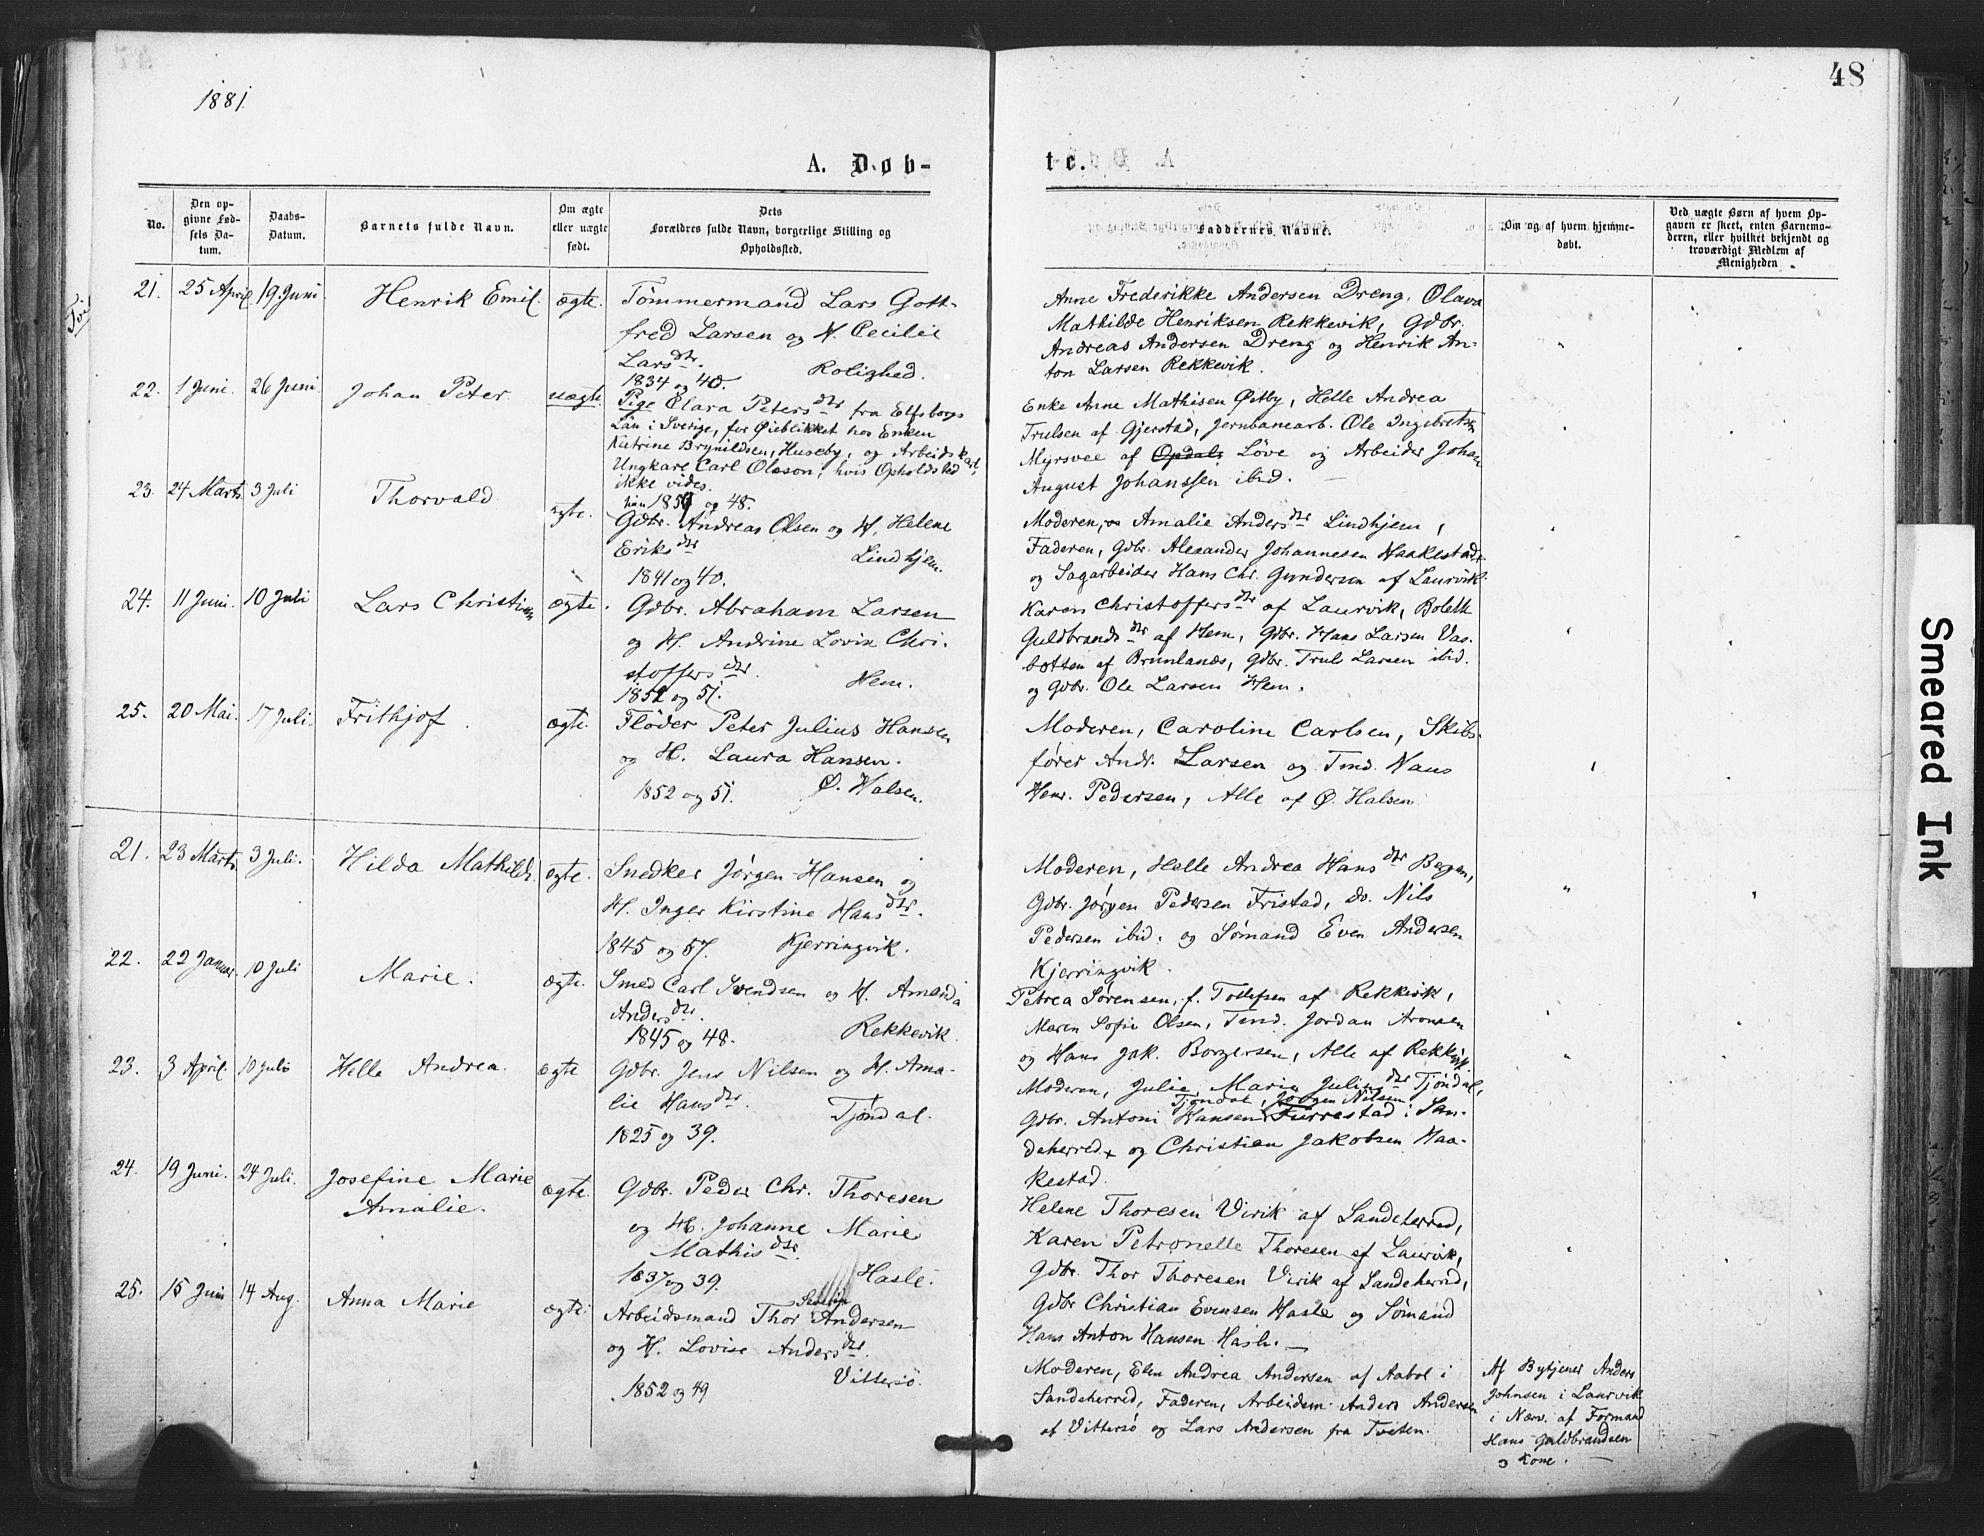 1881.
48
A. Døb-
te.
No.
Den op-
givne Fød-
sels Da-
tum.
Daabs-
Datum.
Barnets fulde Navn.
Om ægte
eller uægte
født.
Dets
Forældres fulde Navn, borgerlige Stilling og
Opholdssted.
Faddernes Navne.
Om og af hvem hjemme-
døbt.
Ved uægte Børn af hvem Op-
gaven er skeet, enten Barnemo-
deren, eller hvilket bekjendt og
troværdigt Medlem af
Menigheden
21. 25 April 19 Juni Henrik Emil. ægte. Tömmermand Lars Gott-
fred Larsen og H. Cecilie
Larsdtr. Rolighed.
1834 og 40.
Anne Frederikke Andersen Dreng, Olava
Mathilde Henriksen Rekkevik, Gdbr.
Andreas Andersen Dreng og Henrik An-
ton Larsen Rekkevik.
22. 1 Juni. 26 Juni Johan Peter uægte. Pige Clara Petersdtr fra Elfsborgs
Län i Sverige, for Øieblikket hos Enken
Katrine Brynildsen, Huseby, og Arbeidskarl,
Ungkarl Carl Olsson, hvis Opholdsted
ikke vides.
han 1859 og 48.
Enke Anne Mathisen Østby, Helle Andrea
Trulsen af Gjerstad, Jernbanearb. Ole Ingebretsen
Myrsvee af Opdals Löve og Arbeider Johan
August Johanssen ibid.
23. 24 Marts 3 Juli Thorvald ægte. Gdbr. Andreas Olsen og H. Helene
Eriksdtr Lindhjem.
1841 og 40.
Moderen, og Amalie Andersdtr Lindhjem,
Faderen, Gdbr. Alexander Johannesen Haakestad
og Sagarbeider Hans Chr. Gundersen af Laurvik.
24. 11 Juni. 10 Juli Lars Christian ægte. Gdbr. Abraham Larsen
og H. Andrine Lovise Chri-
stoffersdtr. Hem.
1852 og 51.
Karen Christoffersdtr af Laurvik, Bolette
Guldbrandsdtr af Hem, Gdbr. Hans Larsen Vas-
botten af Brunlanæs, Gdbr. Truls Larsen ibid.
og Gdbr. Ole Larsen Hem.
25. 20 Mai. 17 Juli. Frithjof. ægte. Fløder Peter Julius Hansen
og H. Laura Hansen.
1852 og 51. Ø. Halsen.
Moderen, Caroline Carlsen, Skibs-
fører Andr. Larsen og Tmd. Hans
Henr. Pedersen, Alle af Ø. Halsen
21. 23 Marts 3 Juli. Hilda Mathilde. ægte. Snedker Jørgen Hansen og
H. Inger Kirstine Hansdtr.
1845 og 57. Kjerringvik.
Moderen, Helle Andrea Hansdtr Bergen,
Gdbr. Jørgen Pedersen Fristad, do. Nils
Pedersen ibid. og Sømand Even Andersen
Kjerringvik.
22. 22 Januar. 10 Juli Marie. ægte. Smed Carl Svendsen og H. Amanda
Andersdtr.
1845 og 48. Rekkevik.
Petrea Sørensen, f. Tollefsen af Rekkevik,
Maren Sofie Olsen, Tmd. Jordan Aronsen
og Hans Jak. Borgersen, Alle af Rekkevik
23. 3 April. 10 Juli Helle Andrea. ægte Gdbr. Jens Nilsen og H. Ama-
lie Hansdtr. Tjøndal.
1825 og 39.
Moderen, Julie Marie Julinsdtr Tjøndal,
Tjøndal, Jørgen Nilsen
Gdbr. Antoni Hansen Furrestad i San-
deherred + og Christian Jakobsen Haa-
kestad.
24. 19 Juni. 24 Juli. Josefine Marie
Amalie. ægte. Gdbr. Peder Chr. Thoresen
og H. Johanne Marie
Mathisdtr.
1837 og 39. Hasle.
Helene Thoresen Virik af Sandeherred,
Karen Petronelle Thoresen af Laurvik,
Gdbr. Thor Thoresen Virik af Sandeherred,
Gdbr Christian Evensen Hasle og Sømand
Hans Anton Hansen Hasle.
25. 15 Juni 14 Aug. Anna Marie ægte. Arbeidsmand Thor Andersen
og H. Lovise Andersdtr.
1852 og 49 Vittersø.
Moderen, Elen Andrea Andersen af Aabol i
Sandeherred, Faderen, Arbeidsm. Anders Andersen
af Vittersø og Lars Andersen fra Tveten.
Af Bytjener Anders
Johnsen i Laurvik
i Nærv. af Formand
Hans Guldbrandsen
og Kone.
Smeared Ink